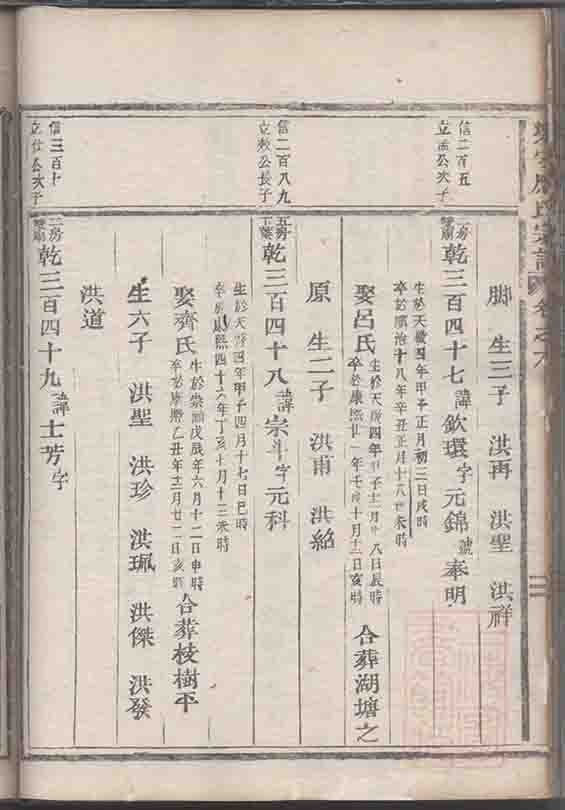 氏宗譜 卷之六
脚 生三子 洪再 洪聖 洪祥
信二百五
立孟公次子
二房
乾三百四十七 諱欽環字元錦號奉明
生於天啟四年甲子正月初三日戌時
卒於順治十八年辛丑正月十八日未時
娶呂氏
生於天啟四年甲子十二月十八日辰時
卒於康熙廿一年壬戌十月十二日亥時
合葬湖塘之
原 生二子 洪甫 洪紹
信二百八九
立教公長子
五房
乾三百四十八 諱宗斗字元科
生於天啟四年甲子四月十七日巳時
卒於康熙四十六年丁亥十月十三未時
娶齊氏
生於崇禎戊辰年六月十二日申時
卒於康熙乙丑年十二月廿二日亥時
合葬枝樹平
生六子 洪聖 洪珍 洪珮 洪傑 洪發
洪道
信三百十
立仕公次子
二房
乾三百四十九 諱士芳字